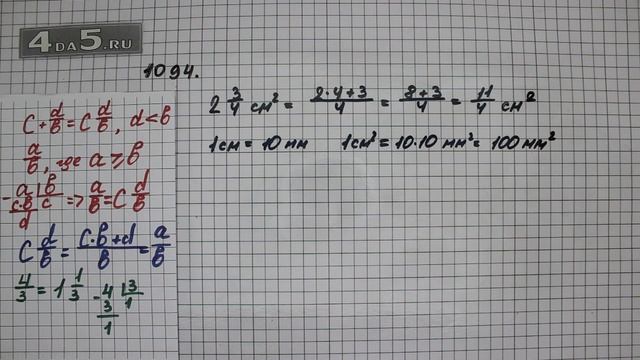 4DA5.RU
1094.
2 3/4 см² = (2·4+3)/4 = (8+3)/4 = 11/4 см²
1см = 10 мм 1см² = 10·10 мм² = 100 мм²
c + d/b = c d/b, d < b
a/b, где a ⩾ b
- a | b
c·b | c => a/b = c d/b
d
c d/b = (c·b+d)/b = a/b
4/3 = 1 1/3
- 4 | 3
3 | 1
1